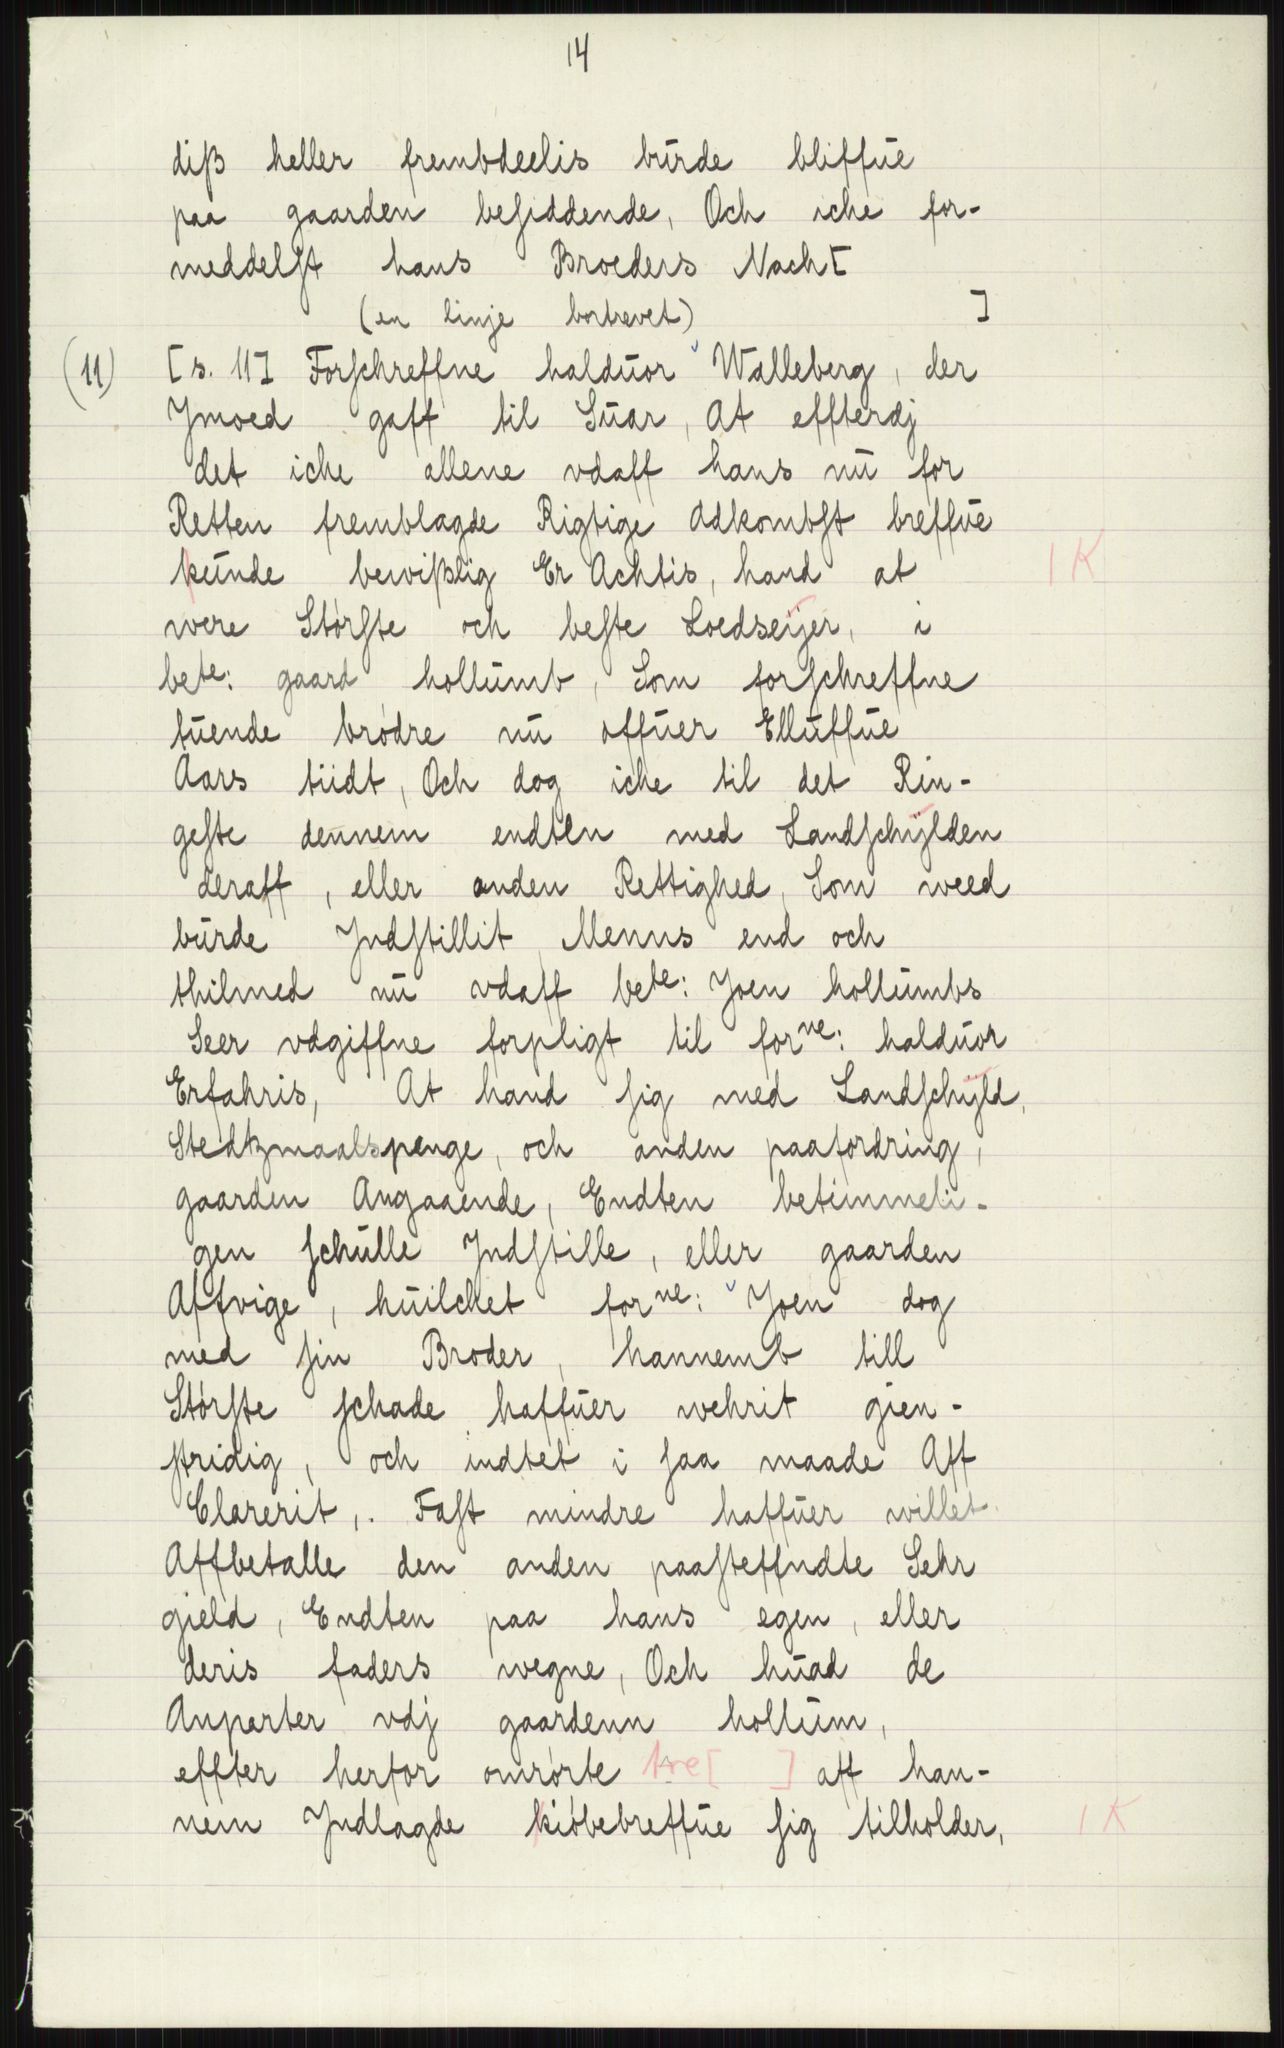 14
diß heller frembdeelis bürde bliffüe
paa gaarden besiddende, Och iche for-
meddelst hans Broeders Nach[
(en linje bortrevet) ]
(11) [s. 11] Forschreffne haldüor Walleberg, der
Ymoed gaff til Süar, At effterdj
det iche allene vdaff hans nü for
Retten fremblagde Rigtige Adkombst breffüe
künde bevißlig Er Achtis, hand at | K
were Störste och beste Loedseÿer, i
bete: gaard hollümb, Som forschreffne
tüende brödre nü offüer Ellüffüe
Aars tiidt, Och dog iche til det Rin-
geste dennem endten med Landschÿlden
deraff, eller anden Rettighed, Som weed
bürde Jndstillit Menns end och
thilmed nü vdaff bete: Joen hollümbs
Seer vdgiffne forpligt til forne: haldüor
Erfahris, At hand sig med Landschÿld,
Stedtzmaalspenge, och anden paafordring,
gaarden Angaaende, Endten betimmeli-
gen schülle Jndstille, eller gaarden
Affvige, hüilchet forne: Joen dog
med sin Broder, hannemb till
Störste schade haffüer wehrit gien-
stridig, och indtet i saa maade Aff
Clarerit,. Fast mindre haffüer willet
Affbetalle den anden paasteffndte Sehr
gield, Endten paa hans egen, eller
deris faders wegne, Och hüad de
Anparter vdj gaardenn hollüm,
effter herfor omrörte tre[ ] aff han-
nem Jndlagde kiöbebreffüe sig tilholder, | K